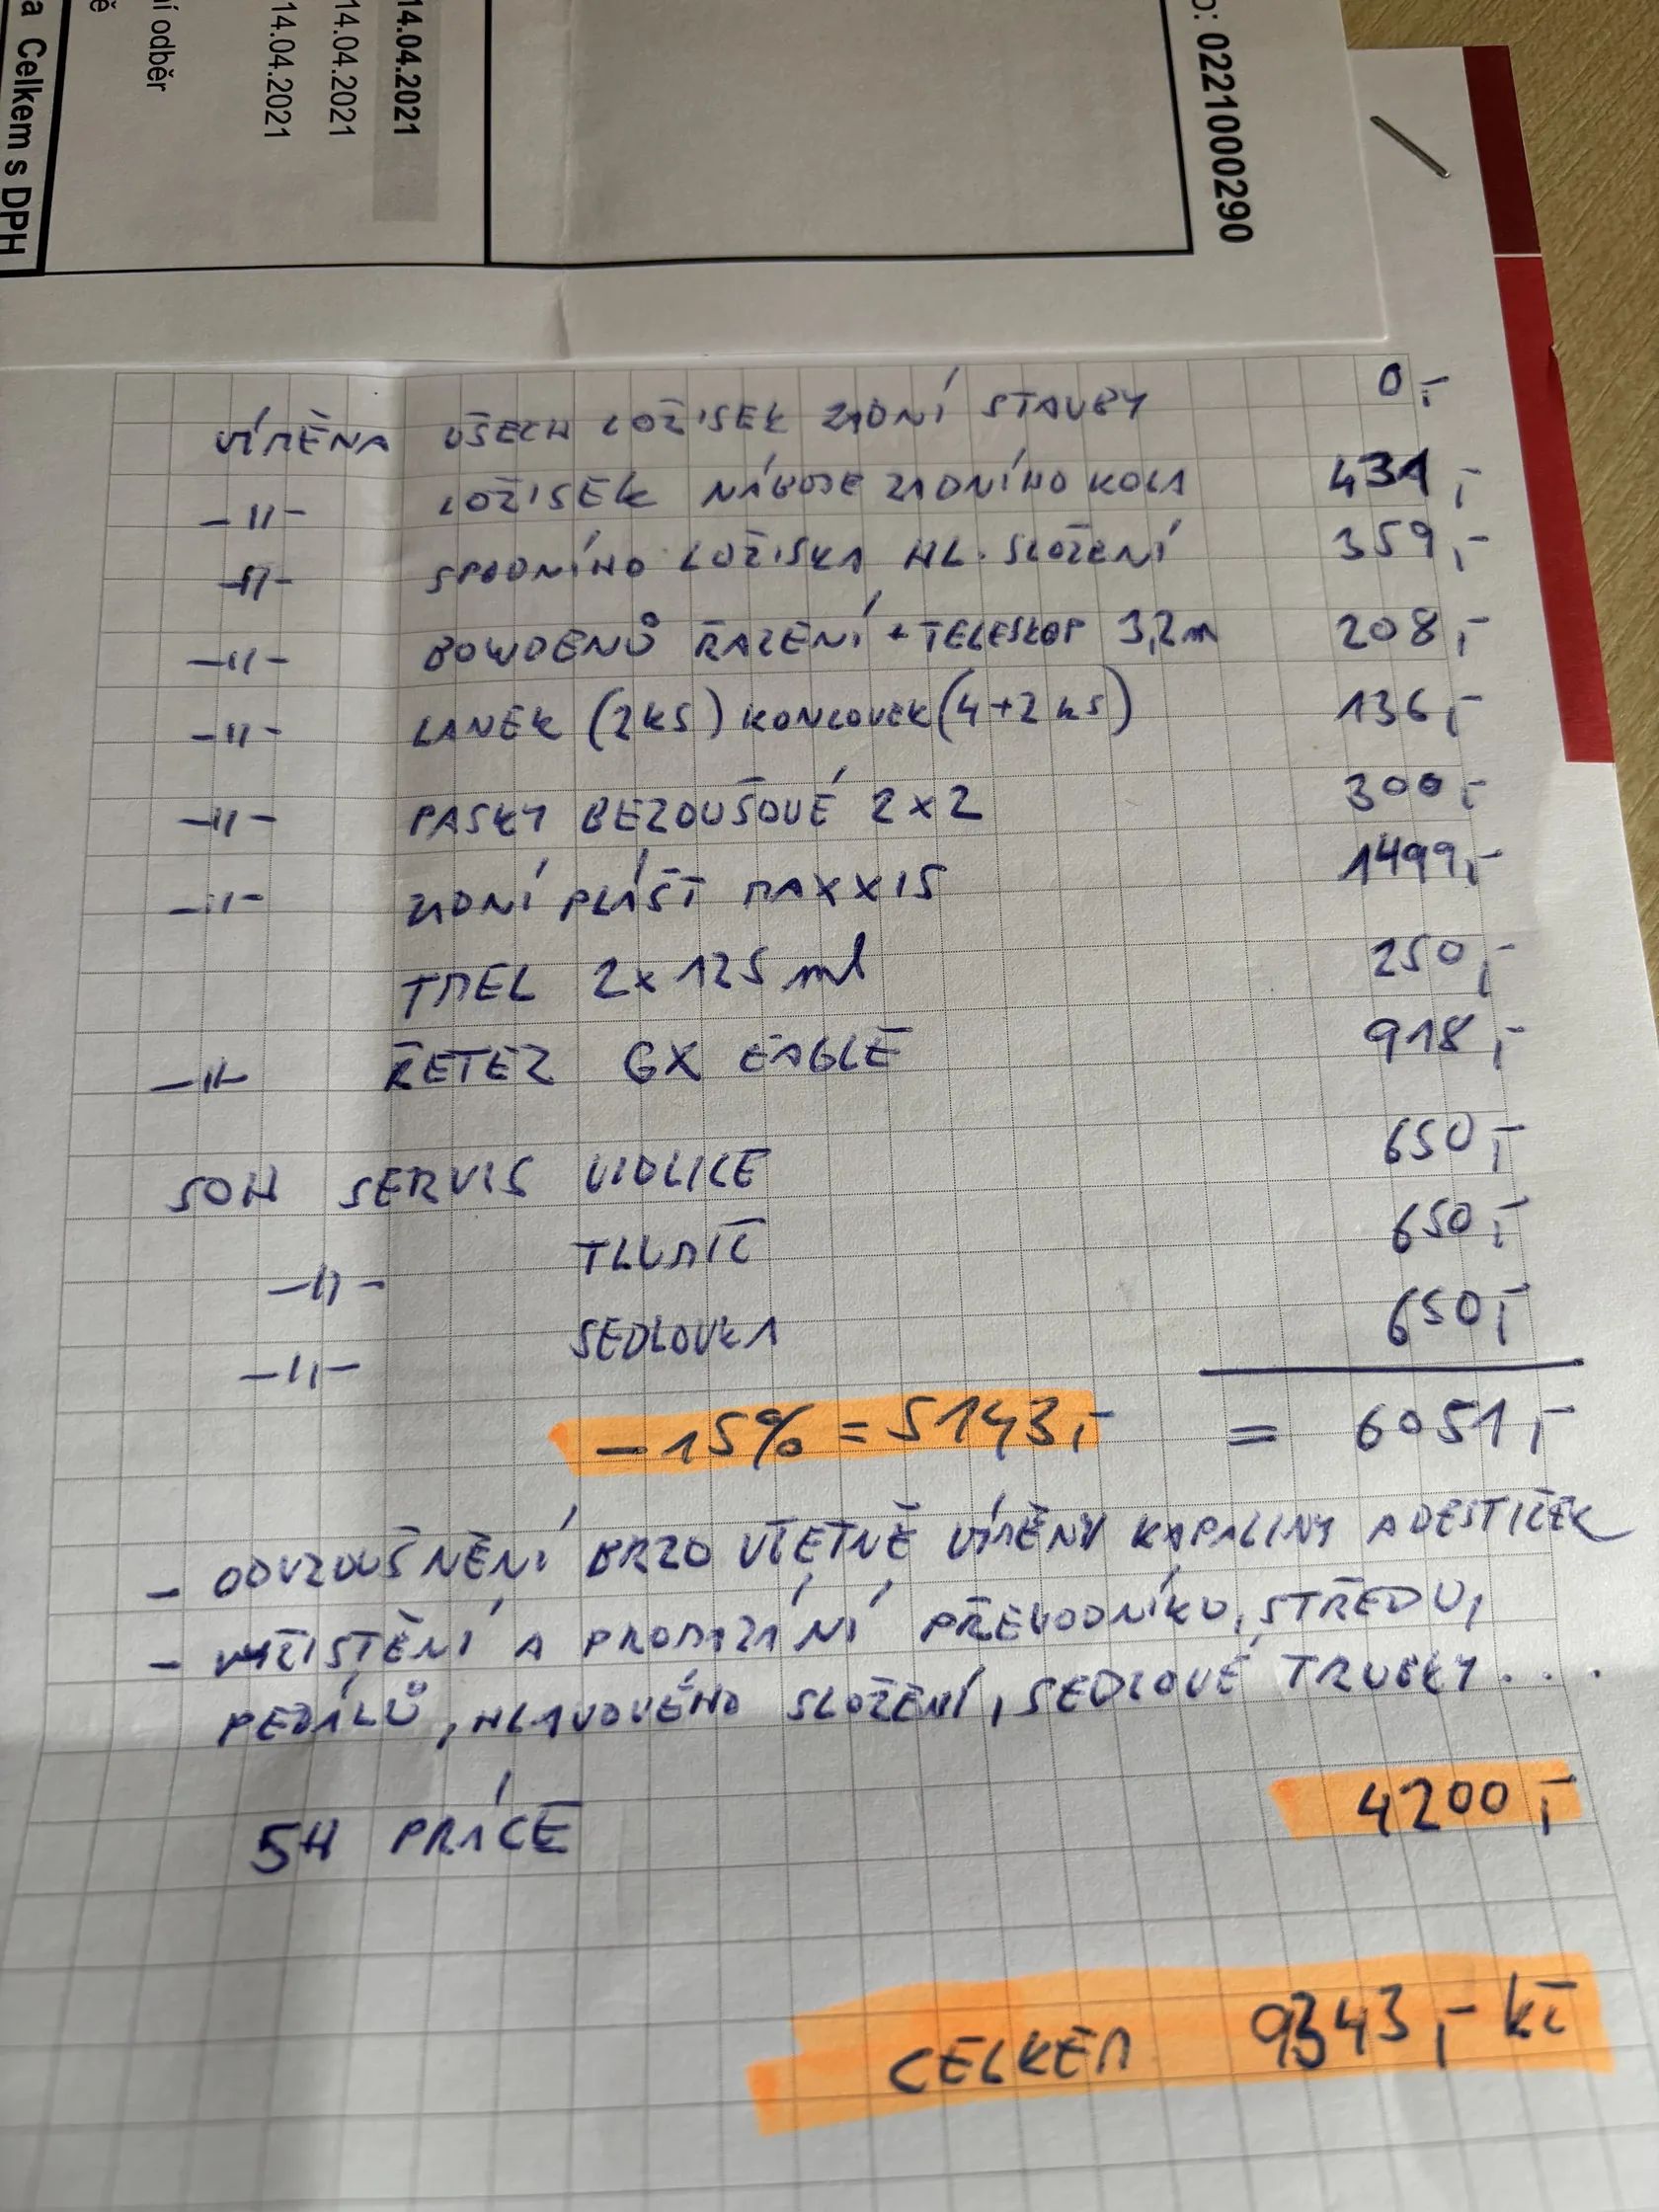 a Celkem s DPH
ě
í odběr
14.04.2021
14.04.2021
14.04.2021
o: 0221000290
VÍMĚNA VŠECH LOŽISEK ZADNÍ STAVBY 0,-
-||- LOŽISEK NÁBOJE ZADNÍHO KOLA 431,-
-||- SPODNÍHO LOŽISKA HL. SLOŽENÍ 359,-
-||- BOWDENŮ ŘAZENÍ + TELESKOP 3,2m 208,-
-||- LANEK (2KS) KONCOVEK (4+2 KS) 136,-
-||- PASKY BEZDUŠOVÉ 2x2 300,-
-||- ZADNÍ PLÁŠŤ MAXXIS 1499,-
TMEL 2x125 ml 250,-
-||- ŘETEZ GX EAGLE 918,-
50H SERVIS VIDLICE 650,-
-||- TLUMIČ 650,-
-||- SEDLOVKA 650,-
-15% = 5143,- = 6051,-
- ODVZDUŠNĚNÍ BRZD VČETNĚ VÍMĚNY KAPALINY A DESTIČEK
- VYČIŠTĚNÍ A PROMAZÁNÍ PŘEVODNÍKU, STŘEDU,
PEDÁLŮ, HLAVOVÉHO SLOŽENÍ, SEDLOVÉ TRUBKY...
5H PRÁCE 4200,-
CELKEM 9343,- Kč